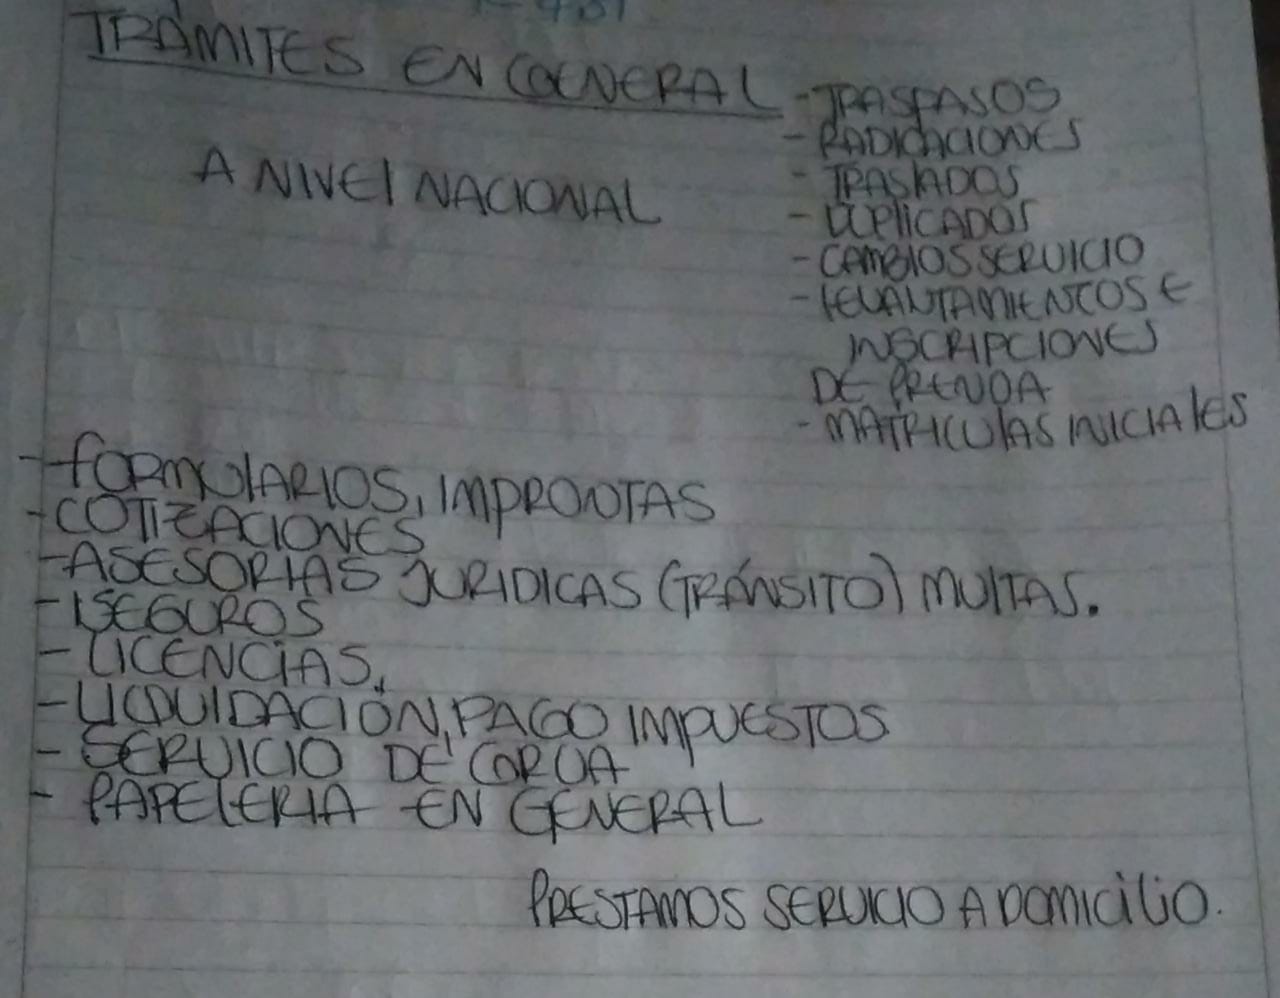 TRÁMITES EN GENERAL
A NIVEL NACIONAL
- TRASPASOS
- RADICACIONES
- TRASLADOS
- DUPLICADOS
- CAMBIOS SERVICIO
- LEVANTAMIENTOS E
INSCRIPCIONES
DE PRENDA
- MATRICULAS INICIALES
- FORMULARIOS, IMPRONTAS
- COTIZACIONES
- ASESORIAS JURIDICAS (TRÁNSITO) MULTAS.
- SEGUROS
- LICENCIAS,
- LIQUIDACIÓN, PAGO IMPUESTOS
- SERVICIO DE GRUA
- PAPELERIA EN GENERAL
PRESTAMOS SERVICIO A DOMICILIO.